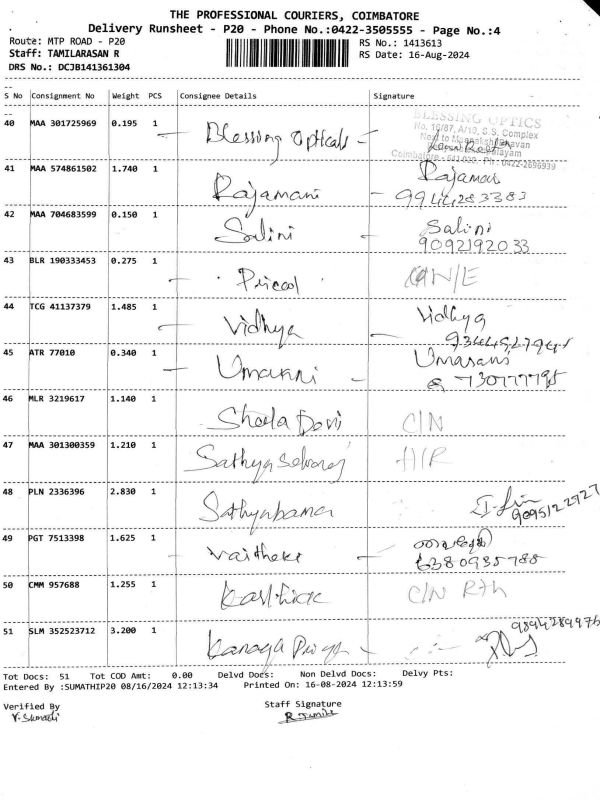 THE PROFESSIONAL COURIERS, COIMBATORE
Delivery Runsheet - P20 - Phone No.:0422-3505555 - Page No.:4
Route: MTP ROAD - P20
RS No.: 1413613
Staff: TAMILARASAN R
RS Date: 16-Aug-2024
DRS No.: DCJB141361304
S No Consignment No Weight PCS Consignee Details Signature
BLESSING OPTICS
40 MAA 301725969 0.195 1 Blessing Opticals
No. 16/87, A/19, S.S. Complex
Coimbatore - 641 030. Ph: 0422-2696939
41 MAA 574861502 1.740 1 Rajamani Rajamani
9944283383
42 MAA 704683599 0.150 1 Salini Salini
9092192033
43 BLR 190333453 0.275 1 Pricol N/E
44 TCG 41137379 1.485 1 Vidhya Vidhya
45 ATR 77010 0.340 1 Umarani Umarani
46 MLR 3219617 1.140 1 Sheela Devi C/N
47 MAA 301300359 1.210 1 Sathya Selvaraj H/R
48 PLN 2336396 2.830 1 Sathyabama
9095122727
49 PGT 7513398 1.625 1 Vaitheki வைதேகி
6380935788
50 CMM 957688 1.255 1 Karthick C/N Rth
51 SLM 352523712 3.200 1 Kanaga Priya 9894289976
Tot Docs: 51 Tot COD Amt: 0.00 Delvd Docs: Non Delvd Docs: Delvy Pts:
Entered By :SUMATHIP20 08/16/2024 12:13:34 Printed On: 16-08-2024 12:13:59
Verified By Staff Signature
V. Sumathi R. Tamil